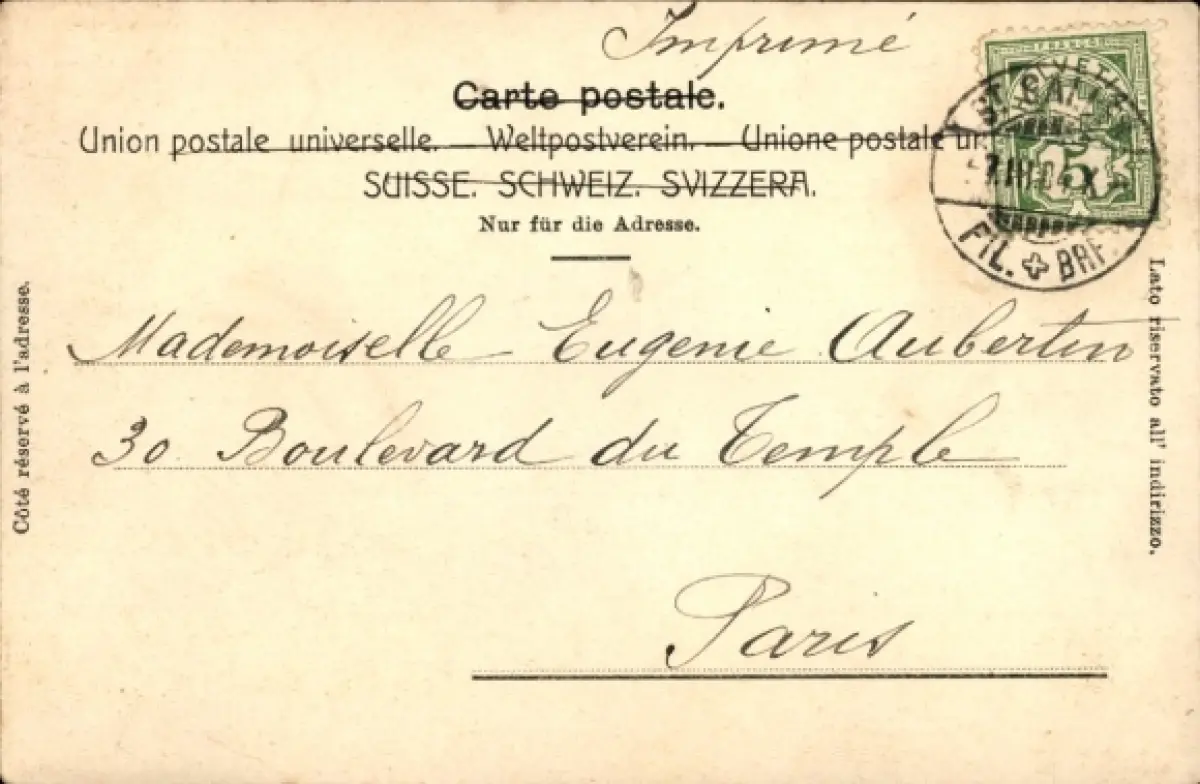 Imprimé
Carte postale.
Union postale universelle. — Weltpostverein. — Unione postale
SUISSE. SCHWEIZ. SVIZZERA.
Nur für die Adresse.
FRANCO
HELVETIA
ST. GALLEN
5
FIL. BRF.
Côté réservé à l'adresse.
Lato riservato all' indirizzo.
Mademoiselle Eugenie Aubertin
30 Boulevard du Temple
Paris